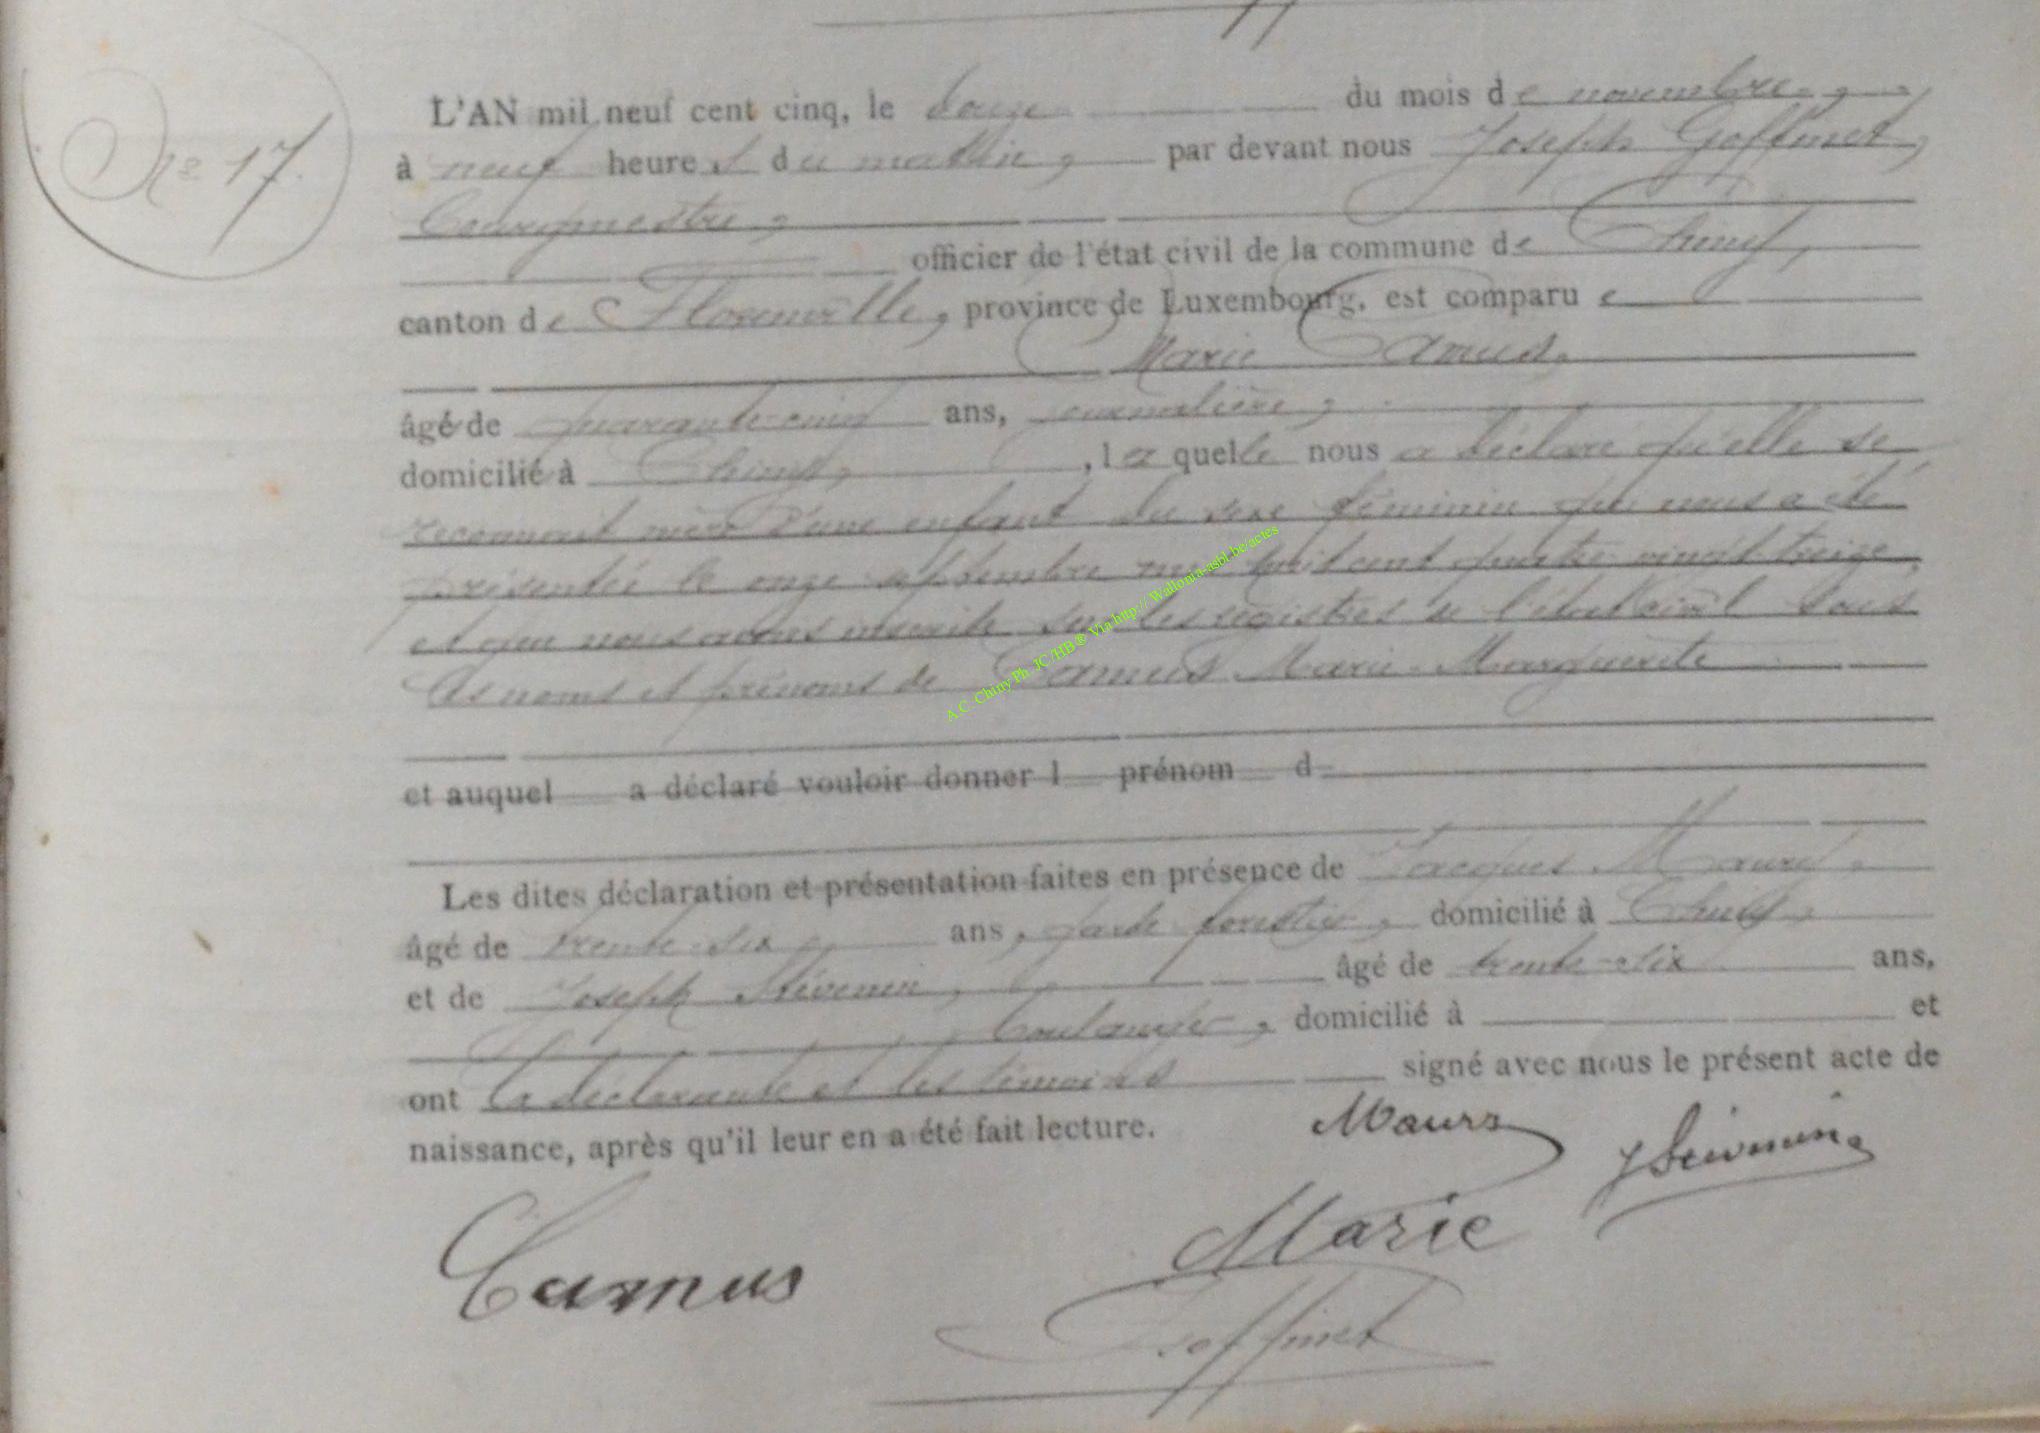 Nº 17.
L'AN mil neuf cent cinq, le douze du mois de novembre,
à neuf heures du matin, par devant nous Joseph Goffinet,
bourgmestre,
officier de l'état civil de la commune de Chiny,
canton de Florenville, province de Luxembourg, est comparue
Marie Camus,
âgé de quarante-cinq ans, journalière,
domicilié à Chiny, laquelle nous a déclaré qu'elle se
reconnait mère d'une enfant du sexe féminin qui nous a été
présentée le onze septembre mil huit cent quatre vingt treize,
et que nous avons inscrite sur les registres de l'état civil sous
les noms et prénoms de Camus Marie-Marguerite
et auquel a déclaré vouloir donner l prénom d
Les dites déclaration et présentation faites en présence de Jacques Maury,
âgé de trente-six ans, garde forestier, domicilié à Chiny,
et de Joseph Stévenin, âgé de trente-six ans,
boulanger, domicilié à et
ont la déclarante et les témoins signé avec nous le présent acte de
naissance, après qu'il leur en a été fait lecture.
Maury
J Stévenin
Camus Marie
Goffinet
A.C. Chiny Ph. JC HB® Via http:// Wallonia-asbl.be/actes